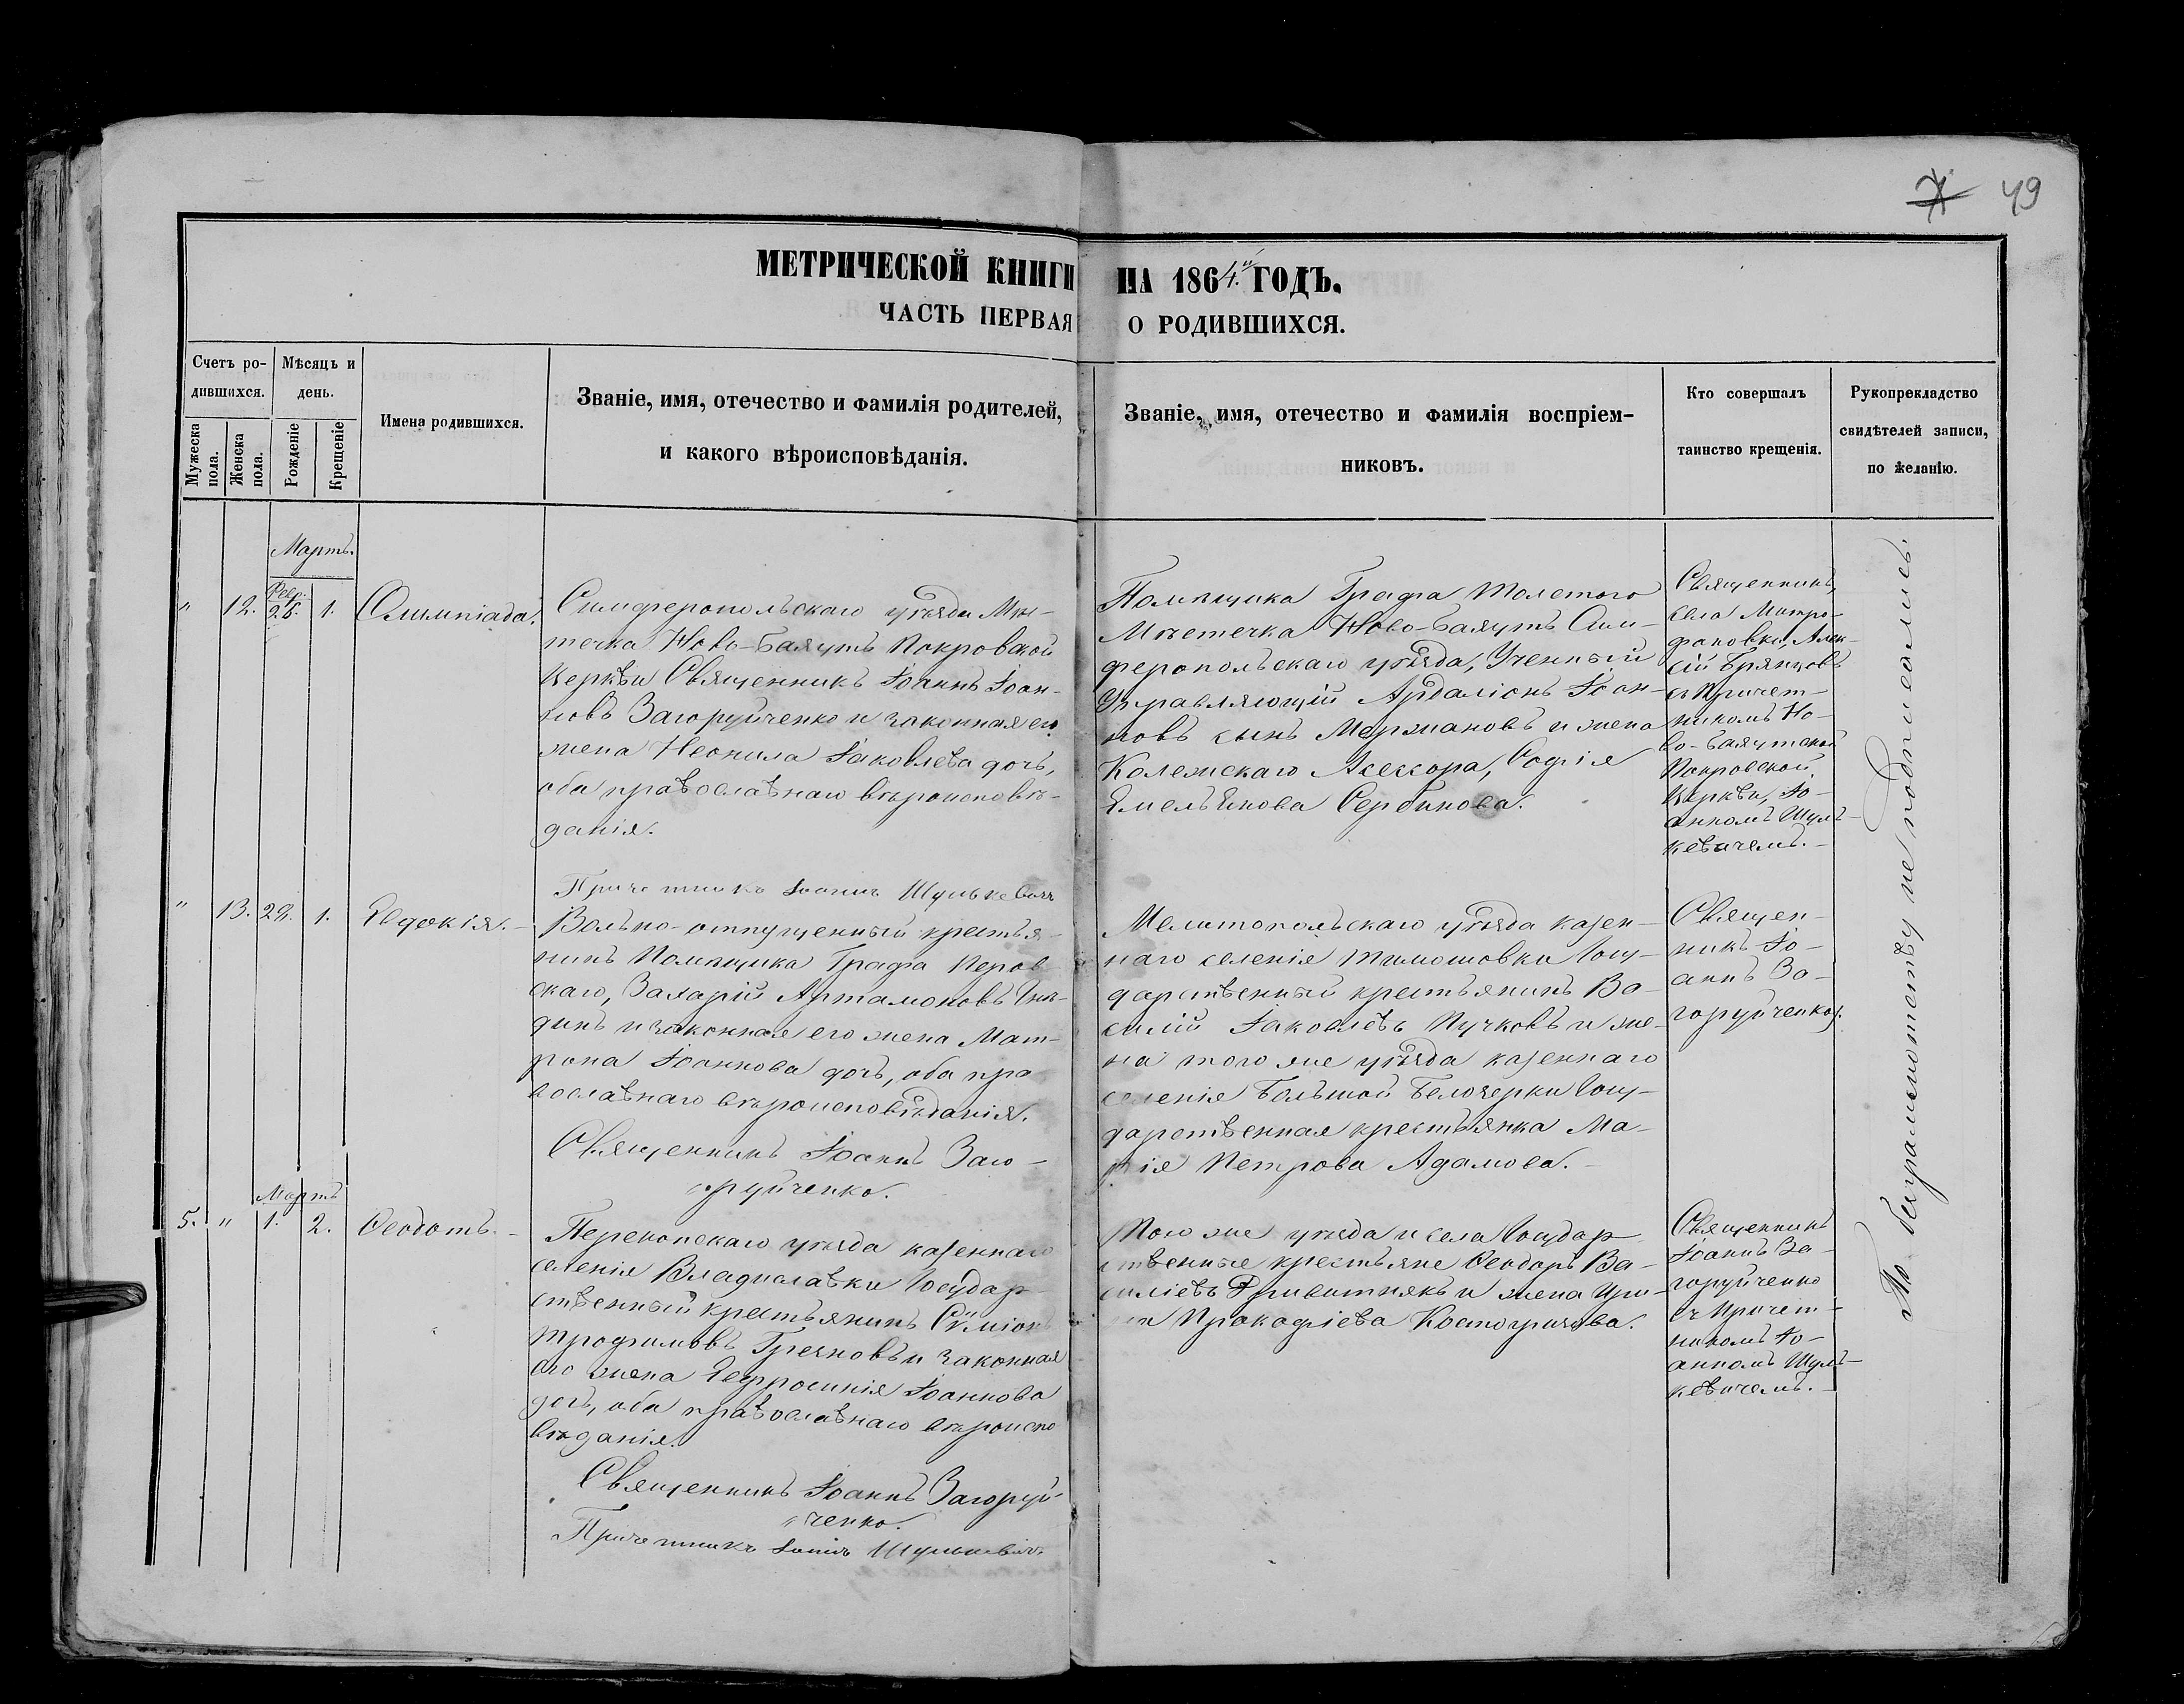 49
МЕТРИЧЕСКОЙ КНИГИ НА 1864й ГОДЪ.
ЧАСТЬ ПЕРВАЯ О РОДИВШИХСЯ.
Счетъ ро-
дившихся.
Мужеска пола.
Женска пола.
Мѣсяцъ и
день.
Рожденіе
Крещеніе
Имена родившихся.
Званіе, имя, отечество и фамилія родителей,
и какого вѣроисповѣданія.
Званіе, имя, отечество и фамилія воспріем-
никовъ.
Кто совершалъ
таинство крещенія.
Рукоприкладство
свидѣтелей записи,
по желанію.
Мартъ.
Февр.
" 12. 25. 1. Олимпіада.
Симферопольскаго уѣзда Мѣс-
течка Ново-Баяутъ Покровской
Церкви Священникъ Іоаннъ Іоан-
новъ Загоруйченко и законная его
жена Неонила Іаковлева дочь,
оба православнаго вѣроисповѣ-
данія.
Причетникъ Іоаннъ Шулькевичъ
Помѣщика Графа Толстого
Мѣстечка Ново-Баяутъ Сим-
феропольскаго уѣзда, Ученный
Управляющій Ардаліонъ Іоан-
новъ сынъ Мержановъ и жена
Колежскаго Асессора, Софія
Емельянова Сербинова.
Священникъ
села Митро-
фановки, Алек-
сій Брянцовъ
съ Причет-
никомъ Но-
во-Баяутской
Покровской
Церкви, Іо-
анномъ Шуль-
кевичемъ.
" 13. 29. 1. Евдокія.
Вольно-отпущенный крестья-
нинъ Помѣщика Графа Перов-
скаго, Захарій Артамоновъ
и законная его жена Мат-
рона Іоаннова дочь, оба пра-
вославнаго вѣроисповѣданія.
Священникъ Іоаннъ Заго-
руйченко.
Мелитопольскаго уѣзда казен-
наго селенія Тимошовки Госу-
дарственный крестьянинъ Ва-
силій Іаковлевъ Пучковъ и же-
на того же уѣзда казеннаго
селенія Большой Белозерки Госу-
дарственная крестьянка Ма-
рія Петрова Адамова.
Священ-
никъ Іо-
аннъ За-
горуйченко.
Мартъ
5. " 1. 2. Феодотъ.
Перекопскаго уѣзда казеннаго
селенія Владиславки Государ-
ственный крестьянинъ Сѵміонъ
Трофимовъ и законная
его жена Евфросинія Іоаннова
дочь, оба православнаго вѣроиспо
вѣданія.
Священникъ Іоаннъ Загоруй-
ченко.
Причетникъ Іоаннъ Шулькевичъ.
Того же уѣзда и села Государ-
ственные крестьяне Феодоръ Ва-
силіевъ и жена Ири-
на Прокофіева
Священникъ
Іоаннъ За-
горуйченко
съ Причет-
никомъ Іо-
анномъ Шуль-
кевичемъ.
По безграмотству не подписались.